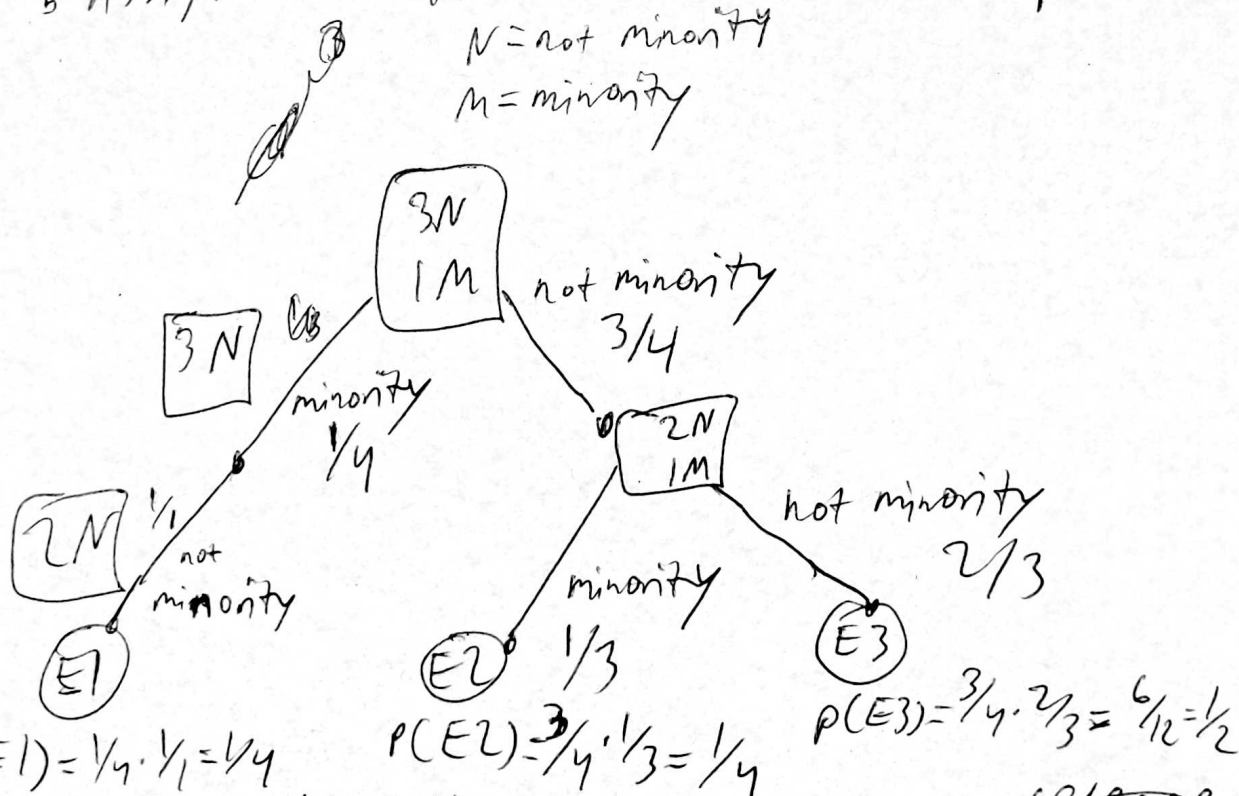 N = not minority
M = minority
3N
1M
not minority
3/4
3N
minority
1/4
2N
1M
2N
1/1
not
minority
not minority
2/3
minority
1/3
E1
E2
E3
1) = 1/4 · 1/1 = 1/4
P(E2) = 3/4 · 1/3 = 1/4
P(E3) = 3/4 · 2/3 = 6/12 = 1/2